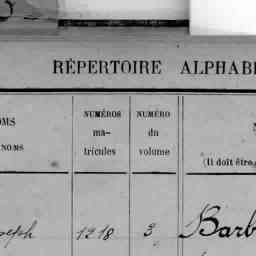 RÉPERTOIRE ALPHABÉ
OMS NUMÉROS NUMÉRO N
ma- du
NOMS tricules volume (Il doit être
oseph 1218 3 Barb